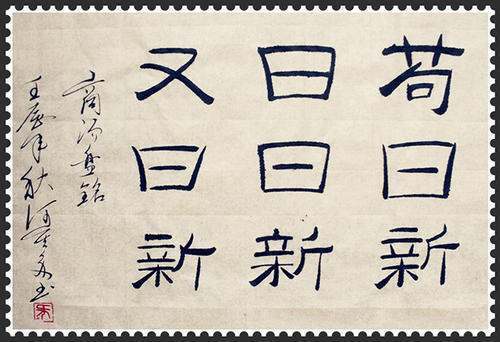 苟日新
日日新
又日新
商湯盤銘
壬辰年秋河東書